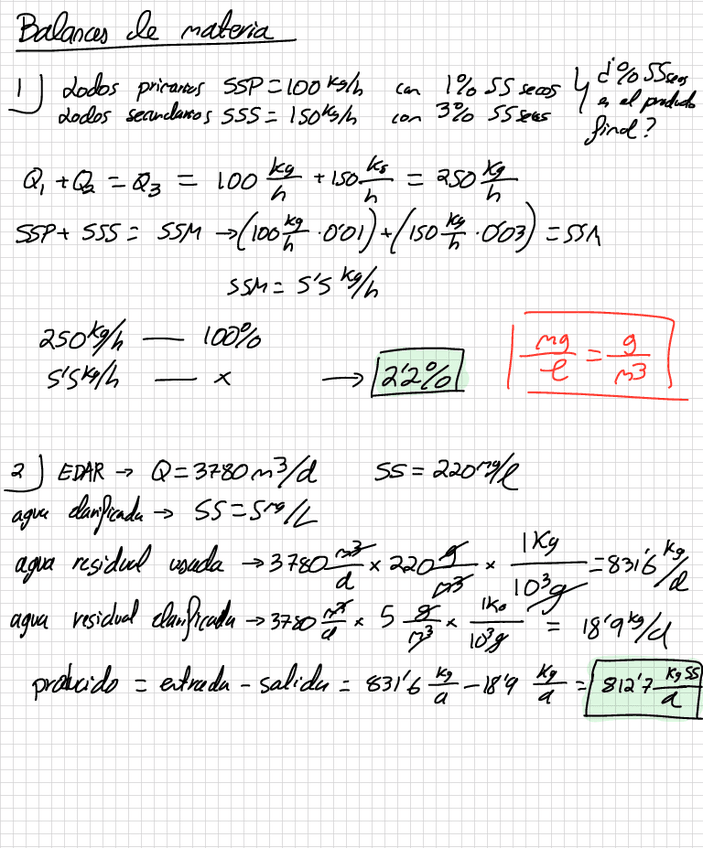 Balances de materia
1) Lodos primarios SSP = 100 kg/h con 1% SS secos
Lodos secundarios SSS = 150 kg/h con 3% SS secos
¿% SS secos
en el producto
final?
Q₁ + Q₂ = Q₃ = 100 kg/h + 150 kg/h = 250 kg/h
SSP + SSS = SSM → (100 kg/h · 0'01) + (150 kg/h · 0'03) = SSM
SSM = 5'5 kg/h
250 kg/h — 100%
5'5 kg/h — x → 2'2%
mg/l = g/m³
2) EDAR → Q = 3780 m³/d SS = 220 mg/l
agua clarificada → SS = 5 mg/L
agua residual usada → 3780 m³/d × 220 g/m³ × 1 Kg/10³ g = 831'6 kg/d
agua residual clarificada → 3780 m³/d × 5 g/m³ × 1 Kg/10³ g = 18'9 kg/d
producido = entrada - salida = 831'6 kg/d - 18'9 kg/d = 812'7 kg SS/d